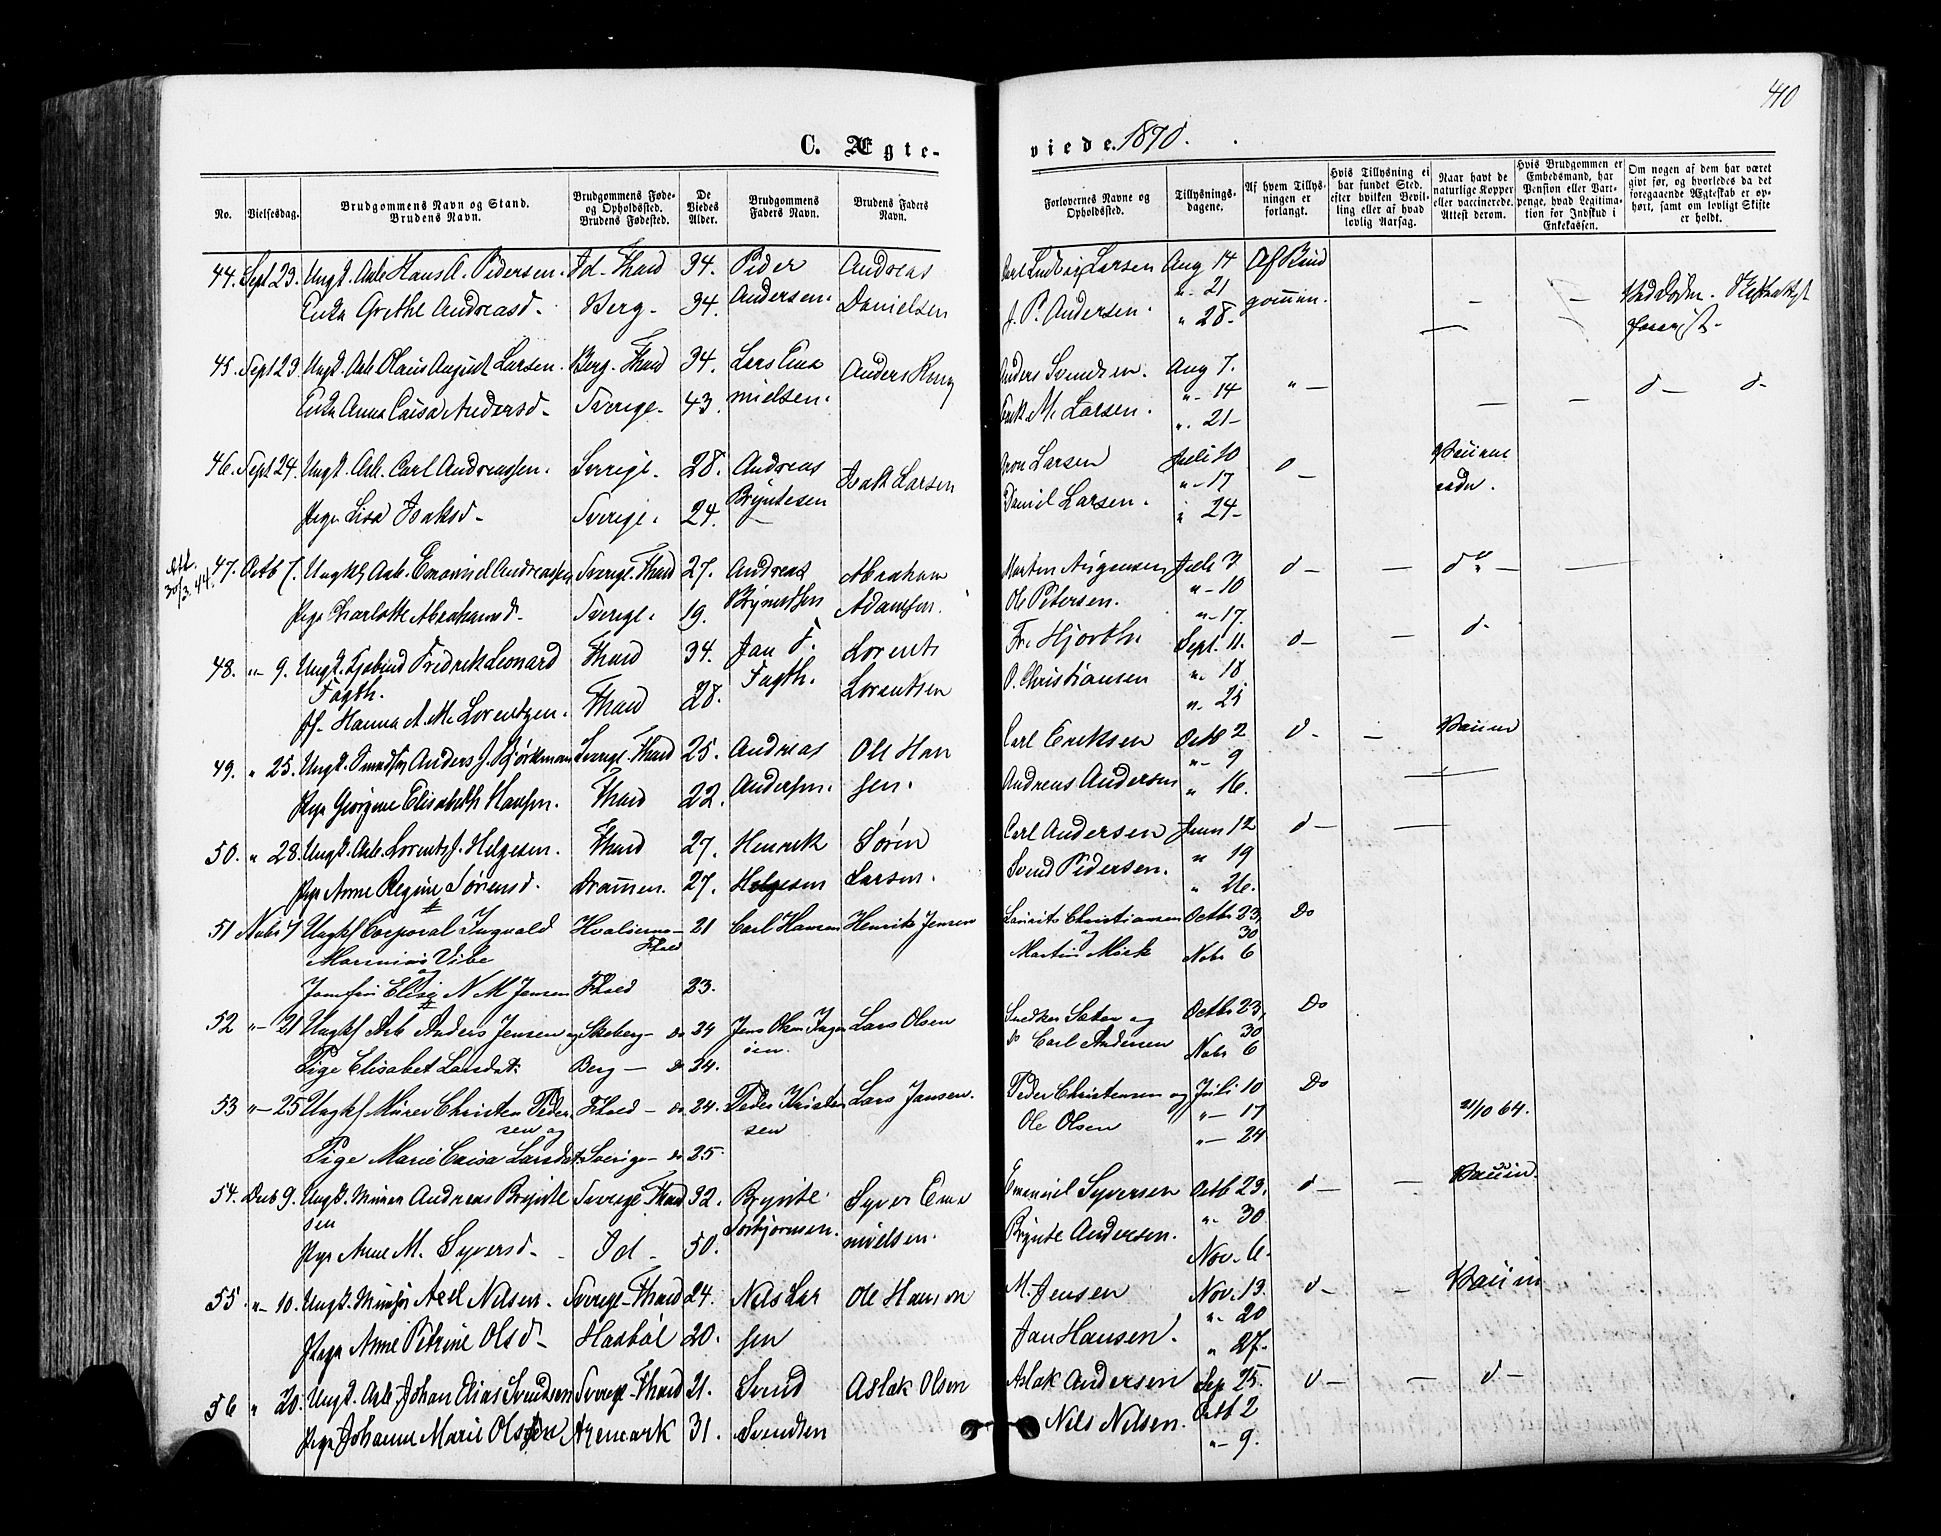 410
C. Ægte-
viede. 1870.
No.
Vielsesdag.
Brudgommens Navn og Stand.
Brudens Navn.
Brudgommens Føde-
og Opholdssted.
Brudens Fødested.
De
Viedes
Alder.
Brudgommens
Faders Navn.
Brudens Faders
Navn.
Forlovernes Navne og
Opholdssted.
Tillysnings-
dagene.
Af hvem Tillys-
ningen er
forlangt.
Hvis Tillysning ei
har fundet Sted,
efter hvilken Bevil-
ling eller af hvad
lovlig Aarsag.
Naar havt de
naturlige Kopper
eller vaccinerede.
Attest derom.
Hvis Brudgommen er
Embedsmand, har
Pension eller Vart-
penge, hvad Legitima-
tion for Indskud i
Enkekassen.
Om nogen af dem har været
givt før, og hvorledes da det
foregaaende Ægteskab er op-
hørt, samt om lovligt Skifte
er holdt.
44. Sept 23. Ungk. Arb. Hans A. Pedersen. Id - Fhald 34. Peder Andreas Carl Ludvig Larsen Aug 14 Af Brud
Enke Grethe Andreasd. Berg. 34. Andersen. Danielsen " 21 gommen. - -
J. P. Andersen. " 28.
45. Sept 23. Ungk. Arb. Olaus August Larsen. Berg. Fhald 34. Lars Ema Anders Anders Svendsen. Aug 7. " -
Enke Anna Caisa Andersd. Sverige. 43. nielsen. " 14 d - d -
Erik M. Larsen. " 21 -
46. Sept 24. Ungk. Arb. Carl Andreassen. Sverige. 28. Andreas Isak Larsen Aron Larsen Juli 10 d -
" 17
Pige Lisa Isaksd. Sverige. 24. Bryntesen Daniel Larsen. " 24 -
Att.
30/3. 44.
47. Octb 7. Ungk. Arb. Emanuel Andreassen Sverige. Fhald 27. Andreas Abraham Morten Jørgensen Juli 3 d - - d -
Pige Charlotte Abrahamsd. Sverige. 19. Adamsen. Ole Petersen. " 10
" 17.
48. " 9. Ungk. Fredrik Leonard Fhald 34. Jan F. Lorents Fr. Hjorth Sept. 11. d - - d -
Fagth. Fagth. O. Christiansen " 18
Jf. Hanna A. M. Lorentzen. Fhald 28. Lorentsen " 25
49. " 25. Ungk. Anders J. Bjørkman Sverige. Fhald 25. Andreas Ole Han Carl Eriksen Octb 2 d - - Vaccin
" 9
Pige Georgine Elisabeth Hansen. Fhald 22. Andersen. sen. Andreas Andersen " 16.
50. " 28. Ungk. Arb. Lorents J. Helgesen. Fhald 27. Henrik Søren Carl Andersen Juni 12 d - -
" 19
Pige Anne Regine Sørensd. Drammen. 27. Helgesen Larsen. Svend Pedersen. " 26.
51 Novbr 7 Ungkf Corporal Ingvald Hvaløerne - Fhald 21 Carl Hansen Henrik Jensen Laurits Christiansen Octbr 23, Do
Marinius Vibe og 30
og Martin Mørk Novbr 6
Jomfru Elise N M Jensen Fhald 23.
52 " - 21 Ungkf Arb Anders Jensen og Skeberg - Do 34 Jens Olsen Lars Olsen Snedker Sater og Octbr 23, Do
Do Carl Andersen 30
Pige Elisabet Larsdat. Berg - Do 34. Novbr 6
53 " - 25 Ungkf Murer Christen Peder Fhald - Do 24. Peder Kristen Lars Jansen. Peder Christensen og Juli 10 Do
sen og sen Ole Olsen " - 17 21/10 64.
Pige Marie Caisa Larsdat. Sverige - Do 25. " - 24
54. Decb 9. Ungk. Murer Andreas Brynte Sverige. Fhald 32. Brynte Syver Ema Emanuel Syversen Octb 23. d - - Vaccin.
sen Torbjørnsen. nuelsen. " 30
Pige Anne M. Syversd. Id - 50. Brynte Andersen. Nov. 6.
55 " - 10. Ungk. Axel Nilsen. Sverige - Fhald 24. Nils Lar Ole Hansen M. Jensen Nov. 13. d - - Vaccin
" 20
Pige Anne Petrine Olsd. Hasbøl 20. sen Jan Hansen. " 27.
56 " 20. Ungk. Arb. Johan Elias Svendsen Sverige - Fhald 21. Svend Aslak Olsen Aslak Andersen Sep. 25. d - - d -
Octb 2
Pige Johanne Marie Olsen Aremark 31. Svendsen Nils Nilsen. " 9.